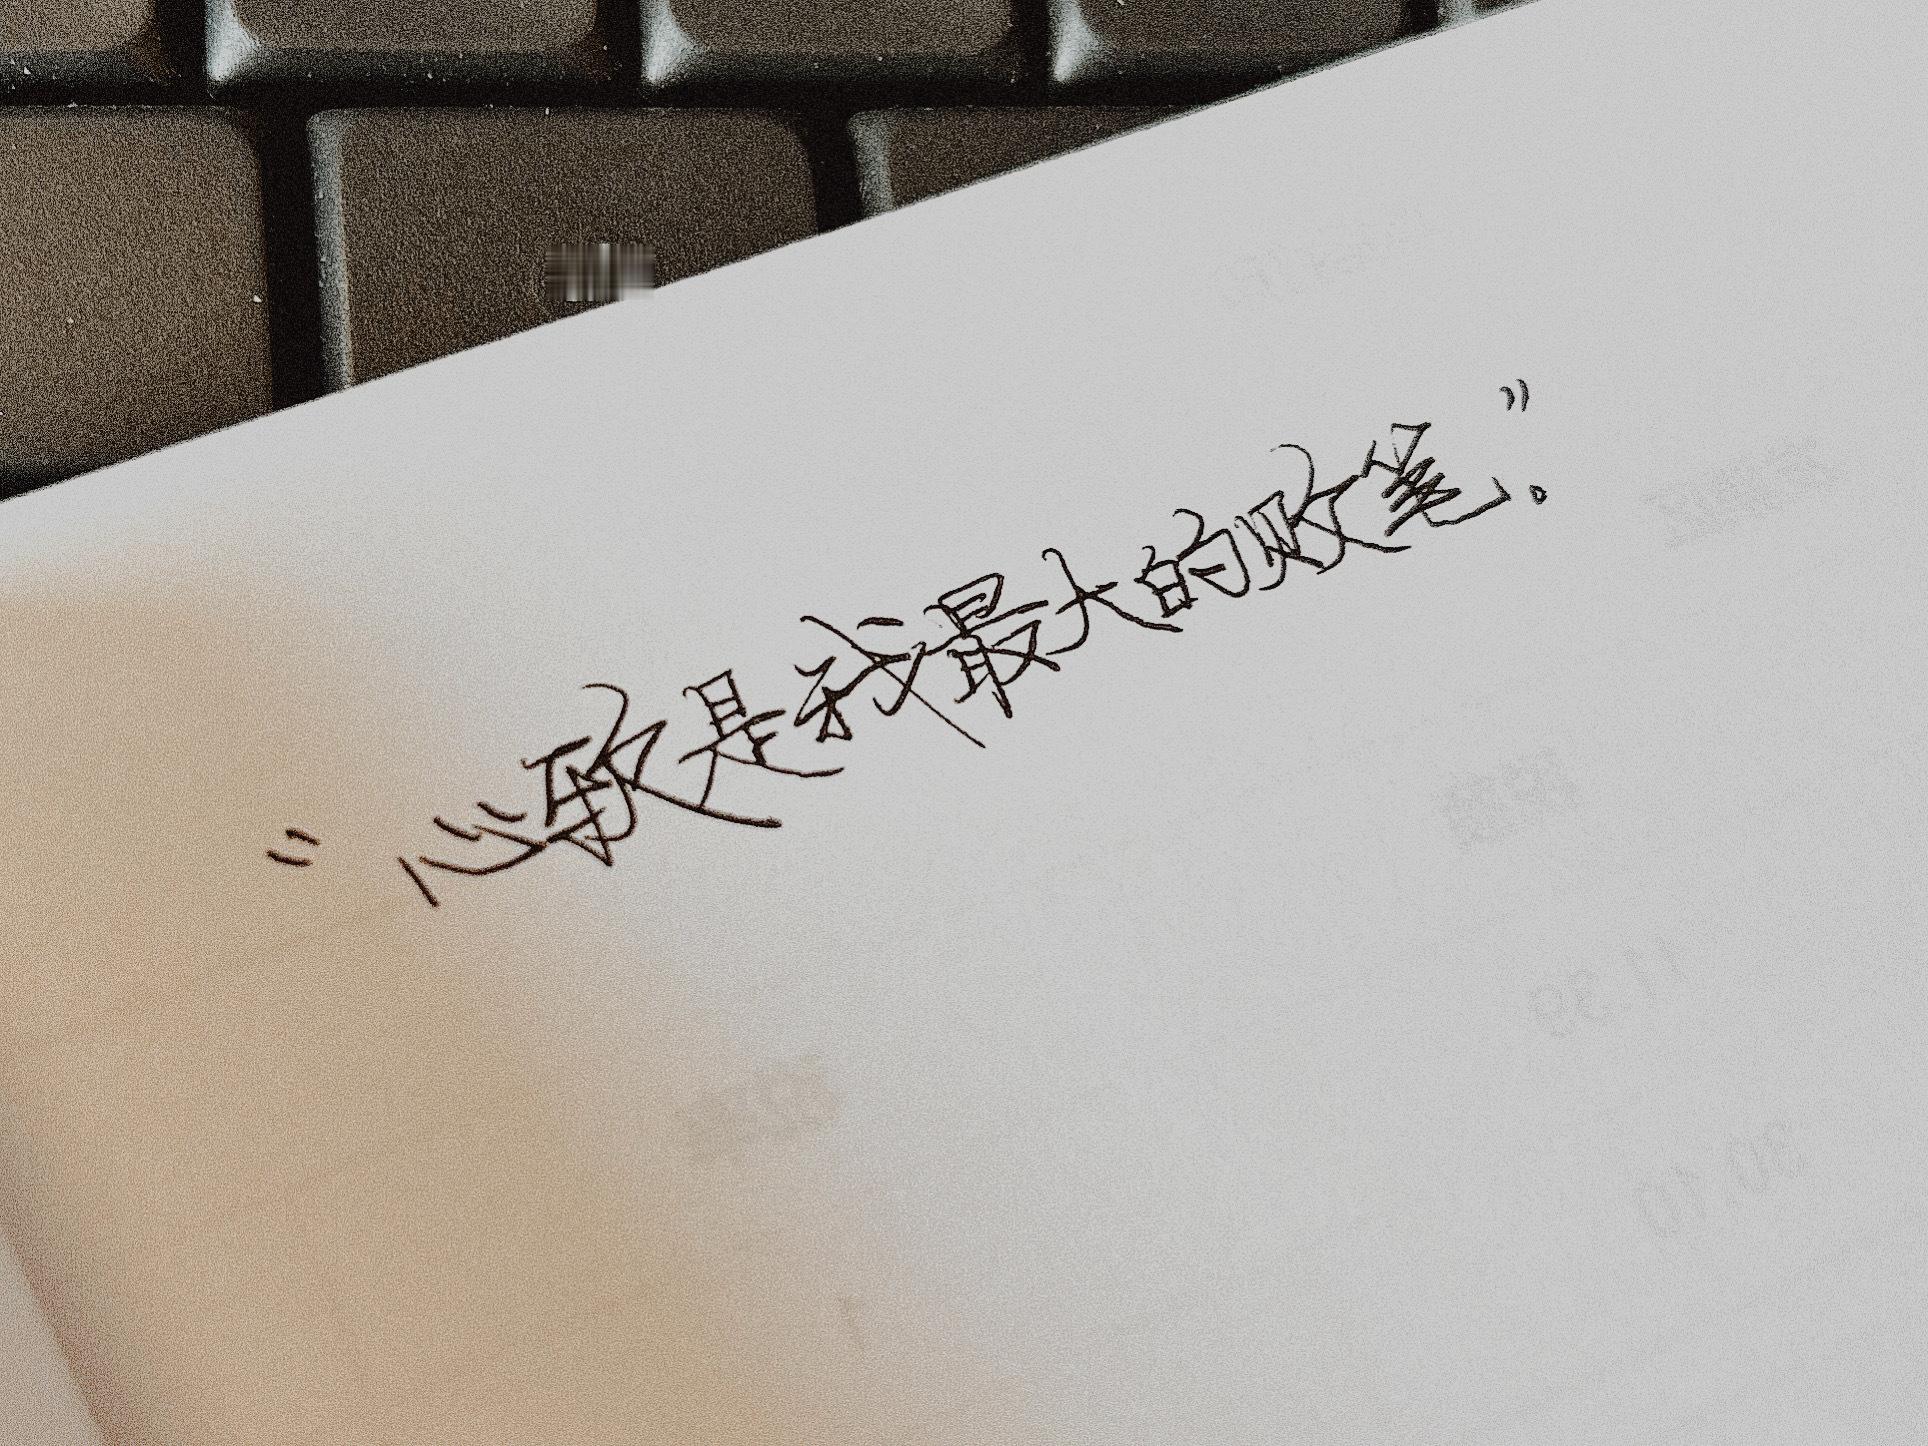 “心软是我最大的败笔。”